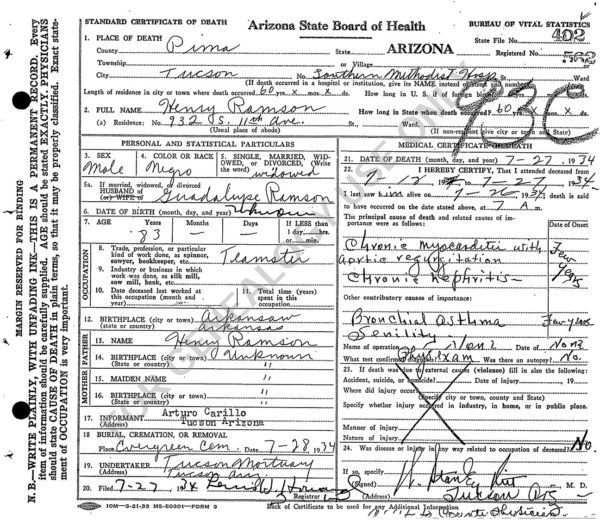 STANDARD CERTIFICATE OF DEATH
Arizona State Board of Health
BUREAU OF VITAL STATISTICS
1. PLACE OF DEATH
State File No. 402
County Pima State ARIZONA Registered No.
Township or Village
City Tucson No. Southern Methodist Hosp
(If death occurred in a hospital or institution, give its NAME instead of street and number)
Length of residence in city or town where death occurred 60 yrs. x mos. x ds. How long in U. S. if of foreign birth? yrs. mos. ds.
2. FULL NAME Henry Ramson How long in State when death occurred? 60 yrs. x mos. x ds.
(a) Residence: No. 932 S. 11th Ave. St., Ward.
(Usual place of abode) (If non-resident give city or town and State)
930
PERSONAL AND STATISTICAL PARTICULARS
3. SEX Male
4. COLOR OR RACE Negro
5. SINGLE, MARRIED, WIDOWED, or DIVORCED (Write the word) widowed
5a. If married, widowed or divorced
HUSBAND of
(or) WIFE of Guadalupe Ramson
6. DATE OF BIRTH (month, day, and year) Unknown
7. AGE Years 83 Months - Days - If LESS than
1 day, hrs.
or min.
OCCUPATION
8. Trade, profession, or particular
kind of work done, as spinner,
sawyer, bookkeeper, etc. Teamster
9. Industry or business in which
work was done, as silk mill,
saw mill, bank, etc.
10. Date deceased last worked at
this occupation (month and
year)
11. Total time (years)
spent in this
occupation
12. BIRTHPLACE (city or town) Arkansaw
(State or country) Arkansas
FATHER
13. NAME Henry Ramson
14. BIRTHPLACE (city or town) Unknown
(State or country) "
MOTHER
15. MAIDEN NAME "
16. BIRTHPLACE (city or town) "
(State or country) "
17. INFORMANT Arturo Carillo
(Address) Tucson Arizona
18. BURIAL, CREMATION, OR REMOVAL
Place Evergreen Cem. Date 7-28, 1934
19. UNDERTAKER Tucson Mortuary
(Address) Tucson Ariz
20. Filed 7-27, 1934
Registrar
MEDICAL CERTIFICATE OF DEATH
21. DATE OF DEATH (month, day, and year) 7-27, 1934
22. I HEREBY CERTIFY, That I attended deceased from
7-27-1934
I last saw him alive on 7-26, 1934, death is said
to have occurred on the date stated above, at 7 A m.
The principal cause of death and related causes of importance were as follows: Date of Onset
Chronic myocarditis with Few
aortic regurgitation Years
Chronic nephritis-
Other contributory causes of importance:
Bronchial asthma Few years
Senility
Name of operation None Date of None
What test confirmed diagnosis? Phys. Exam Was there an autopsy? No.
23. If death was due to external causes (violence) fill in also the following:
Accident, suicide, or homicide? Date of injury 19
Where did injury occur?
(Specify city or town, county and State)
Specify whether injury occurred in industry, in home, or in public place.
Manner of injury
Nature of injury
24. Was disease or injury in any way related to occupation of deceased? No.
If so, specify
(Signed)
(Address) Tucson Ariz
10M—3-21-33 MS-50301—FORM 3
Back of Certificate to be used for any Additional Information
MARGIN RESERVED FOR BINDING
N. B.—WRITE PLAINLY, WITH UNFADING INK—THIS IS A PERMANENT RECORD. Every
item of information should be carefully supplied. AGE should be stated EXACTLY. PHYSICIANS
should state CAUSE OF DEATH in plain terms, so that it may be properly classified. Exact statement of OCCUPATION is very important.